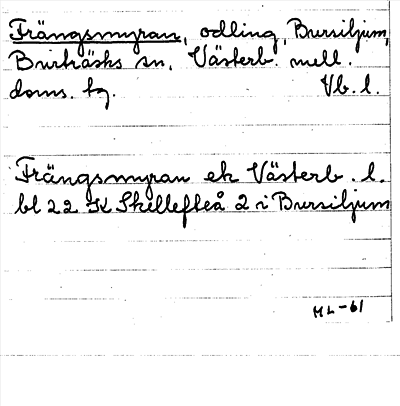 Trängsmyran, odling, Bursiljum,
Burträsks sn. Västerb. mell.
doms. tg. Vb. l.
Trängsmyran ek Västerb. l.
bl 22 K Skellefteå 2 i Bursiljum
ML-61